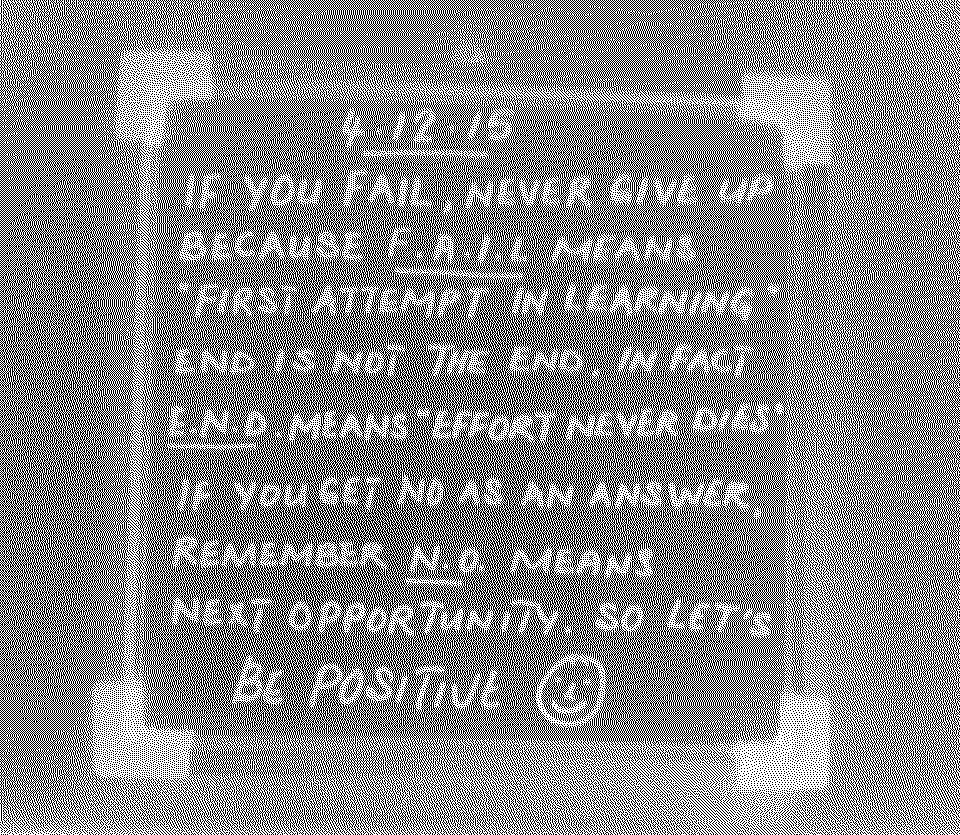 IF YOU FAIL, NEVER GIVE UP
BECAUSE F.A.I.L MEANS
"FIRST ATTEMPT IN LEARNING"
END IS NOT THE END, IN FACT
E.N.D MEANS "EFFORT NEVER DIES"
IF YOU GET NO AS AN ANSWER,
REMEMBER N.O. MEANS
NEXT OPPORTUNITY, SO LET'S
BE POSITIVE